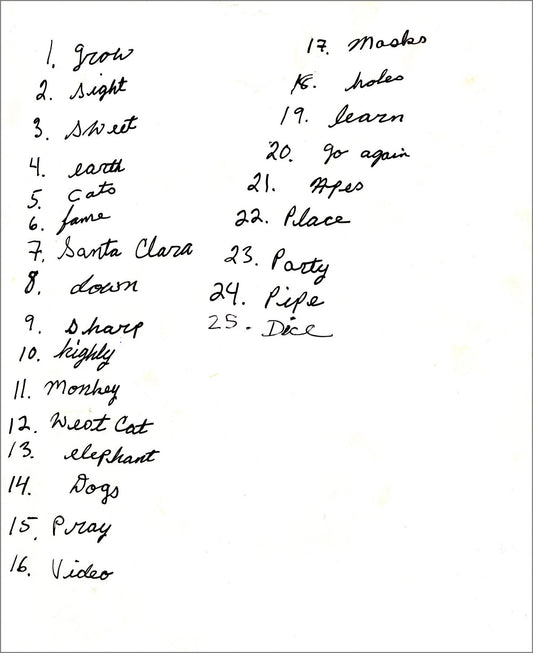 1. grow
2. sight
3. sweet
4. earth
5. Cats
6. fame
7. Santa Clara
8. down
9. sharp
10. highly
11. Monkey
12. West Cat
13. elephant
14. Dogs
15. Pray
16. Video
17. Masks
18. holes
19. learn
20. go again
21. Apes
22. Place
23. Party
24. Pipe
25. Dice